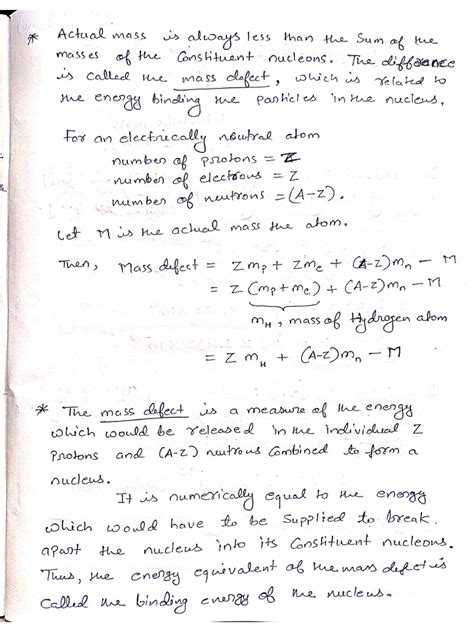 * Actual mass is always less than the Sum of the
masses of the Constituent nucleons. The difference
is called the mass defect, which is related to
the energy binding the particles in the nucleus.
For an electrically neutral atom
number of protons = Z
number of electrons = Z
number of neutrons = (A-Z).
Let M is the actual mass the atom.
Then, Mass defect = Z mp + Z me + (A-Z) mn - M
= Z (mp + me) + (A-Z) mn - M
mH, mass of Hydrogen atom
= Z mH + (A-Z) mn - M
* The mass defect is a measure of the energy
which would be released in the individual Z
Protons and (A-Z) nutrons Combined to form a
nucleus.
It is numerically equal to the energy
which would have to be Supplied to break
apart the nucleus into its Constituent nucleons.
Thus, the energy equivalent of the mass defect is
Called the binding energy of the nucleus.